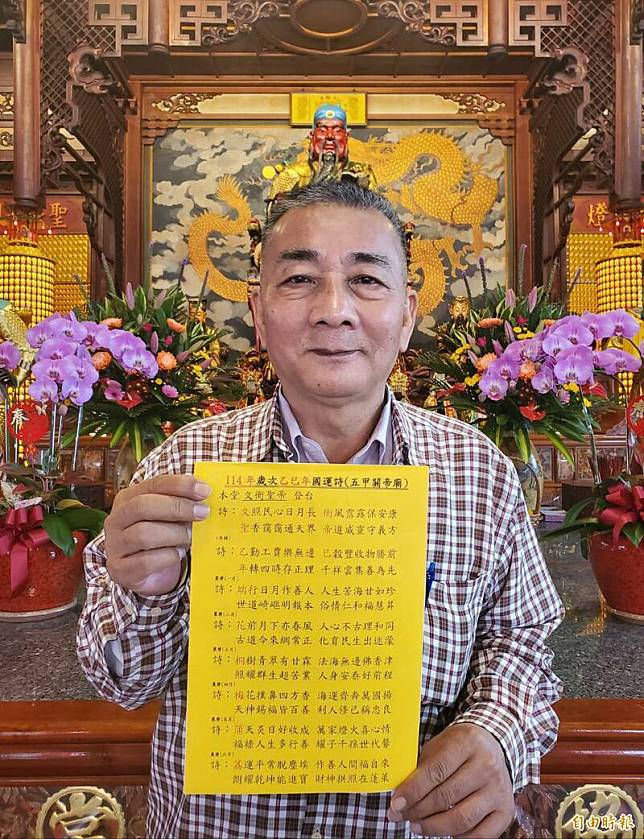 聖
燈
114年歲次乙巳年國運詩(五甲關帝廟)
本堂 文衡聖帝 登台
詩：文照民心日月長 衡風雲露保安康
聖香靄靄通天界 帝道威靈守義方
(年轉)
詩：乙勤工賈樂無邊 巳穀豐收物勝前
年轉四時存正理 干祥雲集善為先
農曆(一月)
詩：端行日月作善人 人生苦海甘如珍
世道崎嶇明報本 修悟仁和福慧昇
農曆(二月)
詩：花前月下亦春風 人心不古理和同
古道今來綱常正 化育民生出迷濛
農曆(三月)
詩：桐樹青翠有甘霖 法海無邊佛香津
照耀群生超苦業 人身安泰好前程
農曆(四月)
詩：梅花撲鼻四方香 海運齊奔萬國揚
天神錫福皆百善 利人修己稱忠良
農曆(五月)
詩：蒲天炎日好收成 萬家燈火喜心情
福祿人生多行善 耀子千孫世代譽
農曆(六月)
詩：荔運平常脫塵埃 作善人間福自來
朗耀乾坤能進寶 財神拱照在蓬萊
堂
自由時報